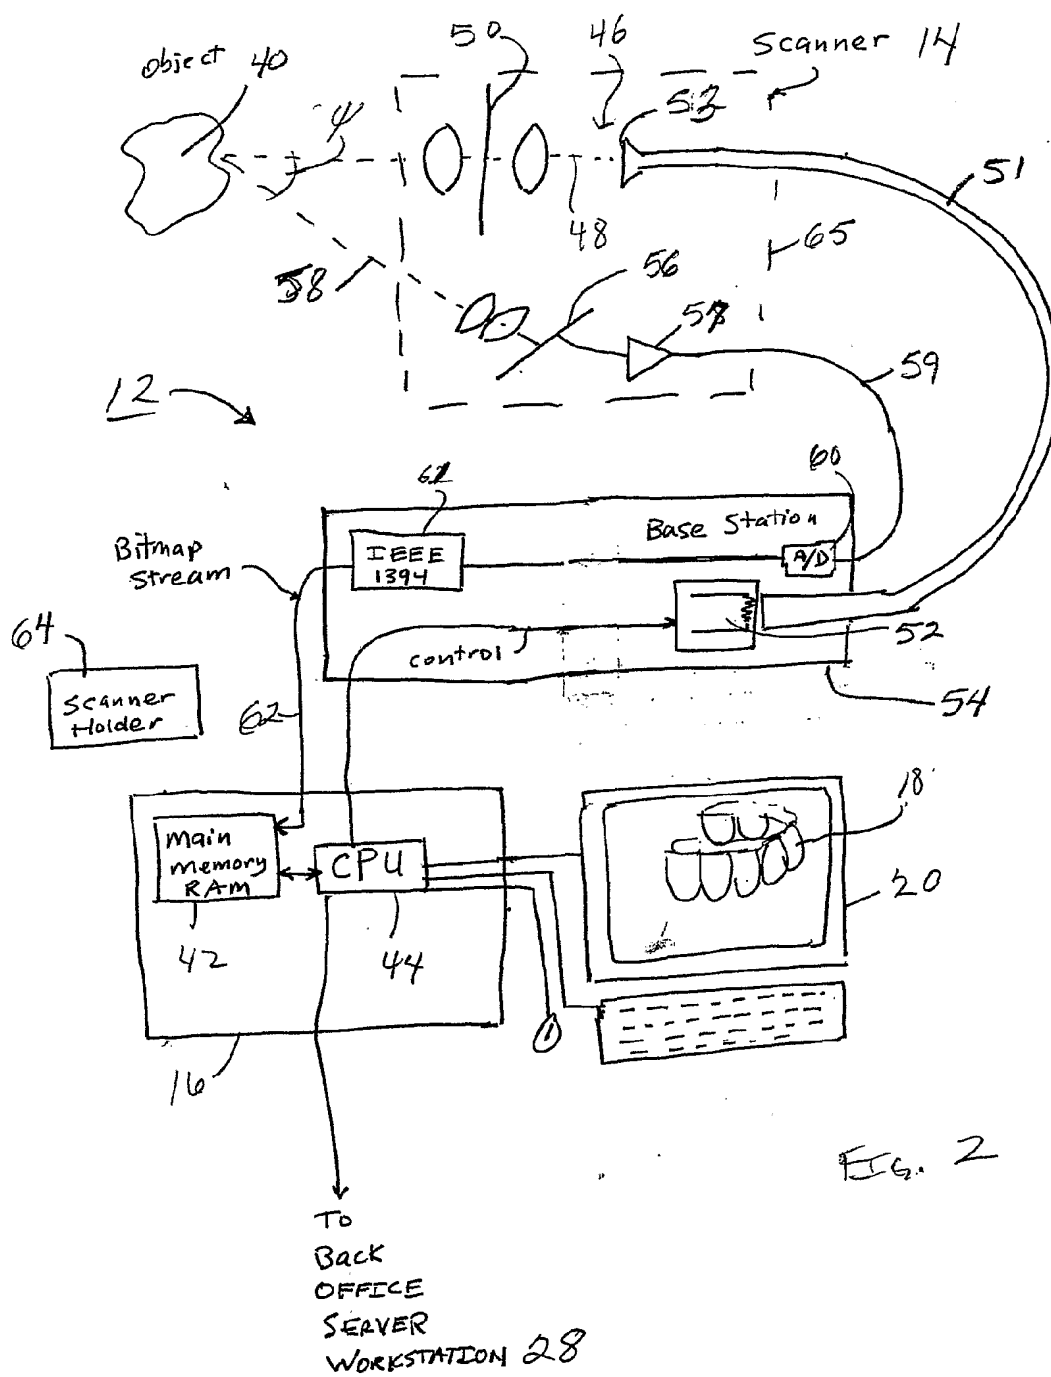 50
46
Scanner 14
object 40
53
φ
51
48
65
58
56
57
59
12
60
61
Base Station
Bitmap
Stream
IEEE
1394
A/D
64
52
control
Scanner
Holder
54
62
18
Main
Memory
RAM
CPU
20
42
44
16
FIG. 2
To
Back
OFFICE
SERVER
WORKSTATION 28